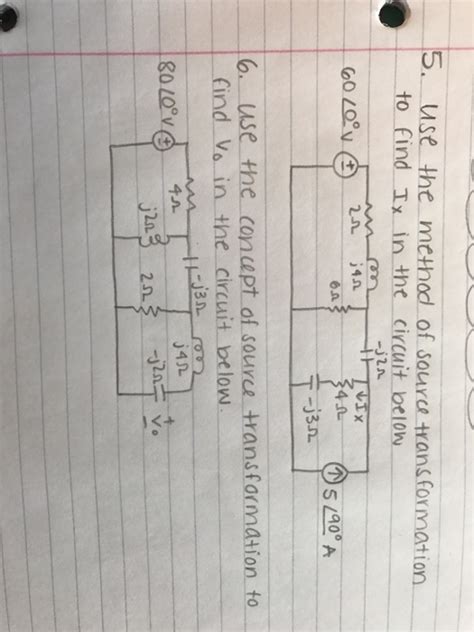 5. Use the method of source transformation
to find Ix in the circuit below
60∠0°V
2Ω
j4Ω
6Ω
-j2Ω
↓Ix
4Ω
-j3Ω
5∠90° A
6. Use the concept of source transformation to
find Vo in the circuit below.
80∠0°V
4Ω
j2Ω
-j3Ω
2Ω
j4Ω
-j2Ω
+
Vo
-